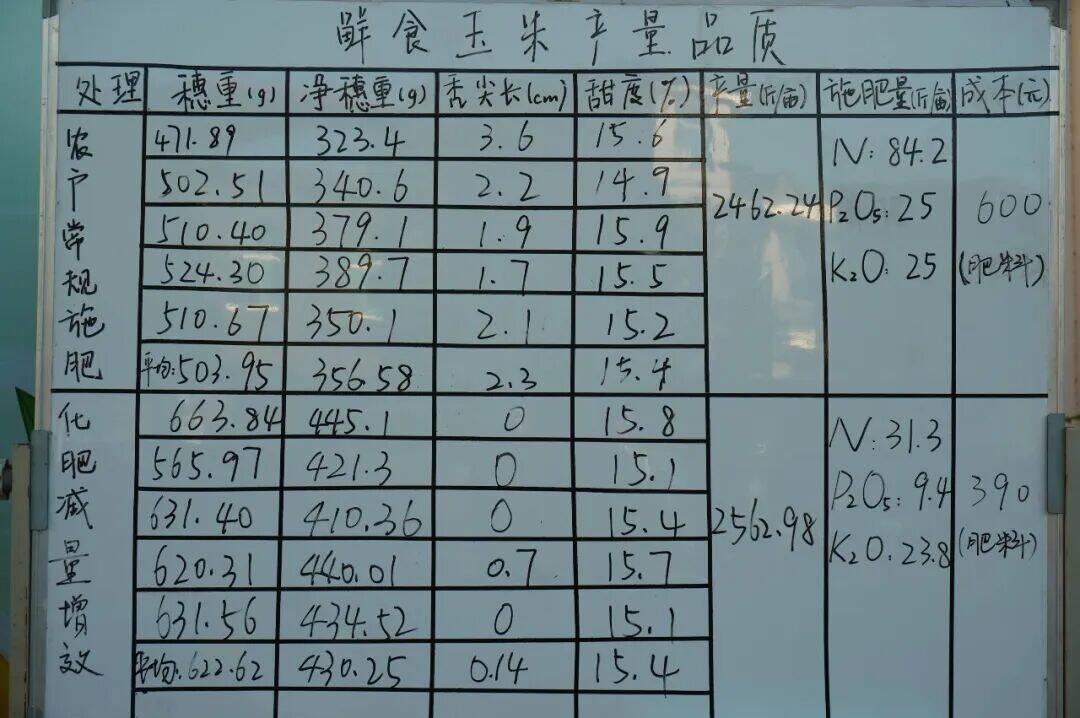 鲜食玉米产量品质
处理 穗重(g) 净穗重(g) 秃尖长(cm) 甜度(%) 产量(斤/亩) 施肥量(斤/亩) 成本(元)
农户常规施肥
471.89 323.4 3.6 15.6
502.51 340.6 2.2 14.9
510.40 379.1 1.9 15.9
524.30 389.7 1.7 15.5
510.67 350.1 2.1 15.2
平均:503.95 356.58 2.3 15.4
2462.24
N:84.2
P₂O₅:25
K₂O:25
600
(肥料)
化肥减量增效
663.84 445.1 0 15.8
565.97 421.3 0 15.1
631.40 410.36 0 15.4
620.31 440.01 0.7 15.7
631.56 434.52 0 15.1
平均:622.62 430.25 0.14 15.4
2562.98
N:31.3
P₂O₅:9.4
K₂O.23.8
390
(肥料)